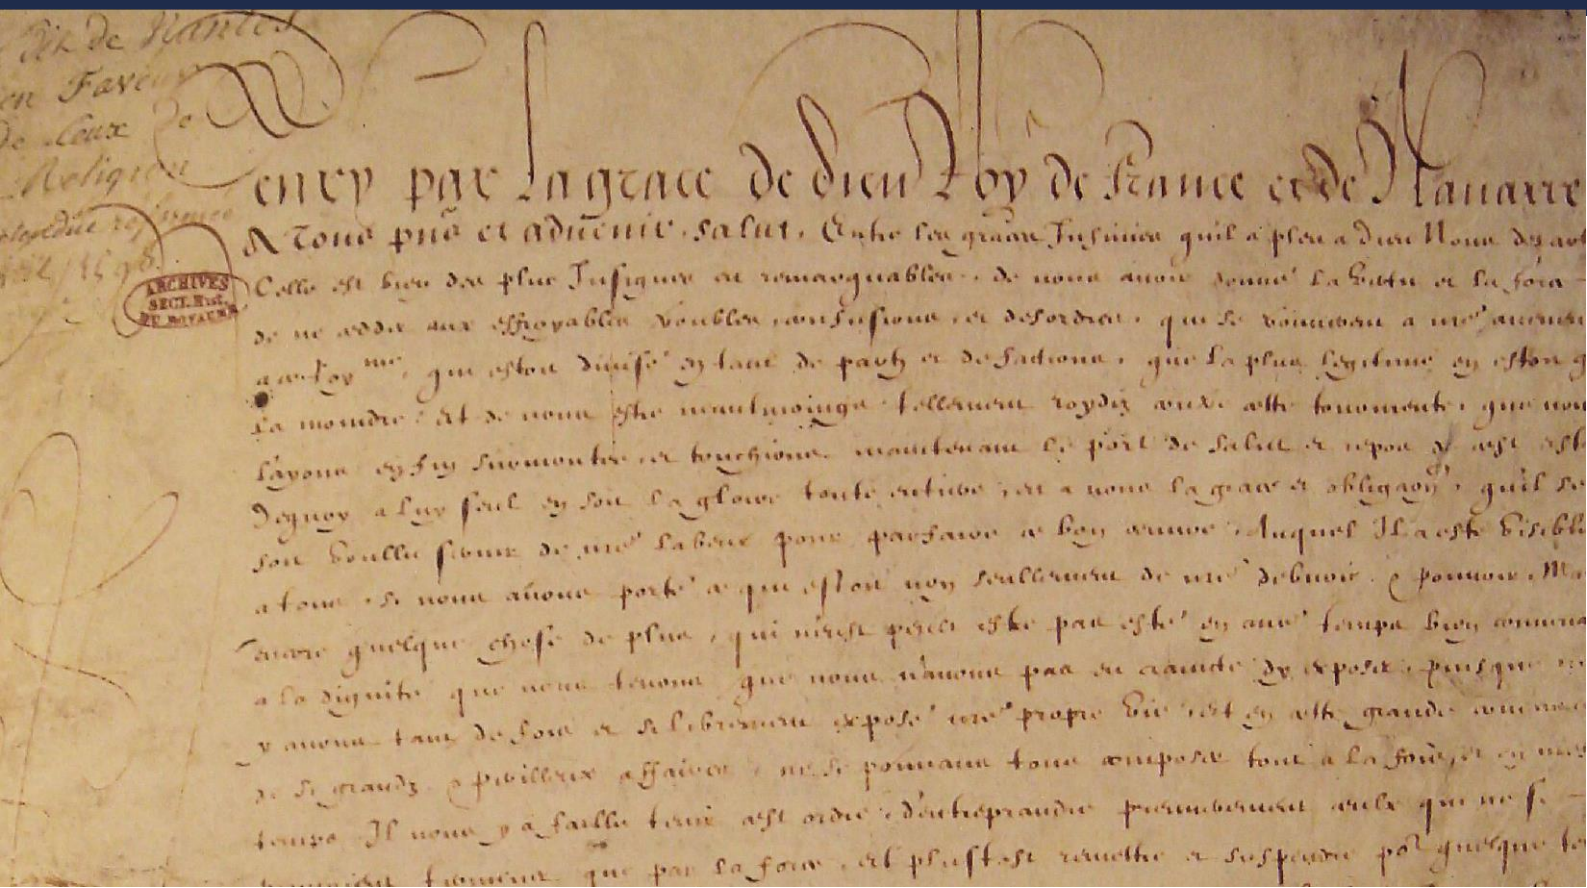 Edit de Nantes
en Faveur
de Ceux de
la Religion
pretendue reformee
1598
ARCHIVES
SECT. HIST.
DU ROYAUME
Henry par la grace de Dieu Roy de France et de Nauarre
A Tous pñs et aduenir. salut. Entre les graces Infinies quil a pleu a Dieu Nous
Celle est bien des plus Insignes et remarquables. de nous auoir donné la vertu et la force
de ne ceddr aux effroyables troubles, confusions, et desordres, qui se trouuerent a nrẽ
a ce Roy me, qui estoit diuisé en tant de partz et de factions, que la plus legitime en estoit
la moindre. Et de nous estre neantmoings tellement roydiz contre ceste tourmente, que nous
layons enfin surmontee, et touchions maintenant le port de salut et repos de cest
Dequoy a luy seul en soit la gloire toute entiere, et a nous la grace et obligaoñ, quil se
soit voullu seruir de nrẽ labeur pour parfaire ce bon oeuure. Auquel Il a esté
a tous, si nous auons porté ce qui estoit non seullement de nrẽ debuoir & pouuoir, Mais
encore quelque chose de plus, qui neust peut estre pas esté en autẽ temps bien
a la dignité que nous tenons, que nous n'auons pas eu craincte dy exposer, puisque
y auons tant de fois et si librement exposé nrẽ propre vie. Et en ceste grande
de si grandz & perilleux affaires, ne se pouuans tous composer tout a la fois, et en
temps Il nous y a faillu tenir cest ordre, d'entreprandre premierement ceulx qui ne se
terminer que par la force, et plustost remettre et suspendre poʳ quelque